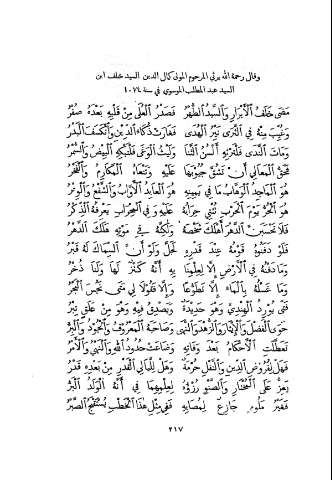 وقال رحمة الله يرثي المرحوم المولى كمال الدين السيد خلف ابن
السيد عبد المطلب الموسوي في سنة ١٠٧٤
مَضَى خَلَفُ الْأَبْرَارِ وَالسَّيِّدُ الطُّهْرُ فَصَدْرُ الْعُلَى مِنْ قَلْبِهِ بَعْدَهُ صِفْرُ
وَغُيِّبَ مِنْهُ فِي الثَّرَى نَيِّرُ الْهُدَى فَغَارَتْ ذُكَاءُ الدِّينِ وَانْكَسَفَ الْبَدْرُ
وَمَاتَ النَّدَى فَلْتَرْثِهِ أَلْسُنُ الثَّنَا وَلَيْثُ الْوَغَى فَلْتَبْكِهِ الْبِيضُ وَالسُّمْرُ
فَحَقُّ الْمَعَالِي أَنْ تَشُقَّ جُيُوبَهَا عَلَيْهِ وَتَنْعَاهُ الْمَكَارِمُ وَالْفَخْرُ
هُوَ الْمَاجِدُ الْوَهَّابُ مَا فِي يَمِينِهِ هُوَ الْعَابِدُ الْأَوَّابُ وَالشَّفْعُ وَالْوِتْرُ
هُوَ الْحُرُّ يَوْمَ الْحَرْبِ تُثْنِي حِرَابُهُ عَلَيْهِ وَفِي الْمِحْرَابِ يَعْرِفُهُ الذِّكْرُ
فَلَا تَحْسَبَنَّ الدَّهْرَ أَهْلَكَ شَخْصَهُ وَلَكِنَّهُ فِي مَوْتِهِ هَلَكَ الدَّهْرُ
فَلَوْ دَفَنُوهُ قَوْمُهُ عِنْدَ قَدْرِهِ لَجَلَّ وَلَوْ أَنَّ السِّمَاكَ لَهُ قَبْرُ
وَمَا دَفْنُهُ فِي الْأَرْضِ إِلَّا لِعِلْمِنَا بِهِ أَنَّهُ كَنْزٌ لَهَا وَلَنَا ذُخْرُ
وَمَا غُسْلُهُ بِالْمَاءِ إِلَّا تَطَوُّعًا وَإِلَّا فَقُولَا لِي مَتَى نَجِسَ الْبَحْرُ
فَتًى يُورِدُ الْهِنْدِيَّ وَهْوَ حَدِيدَةٌ وَيُصْدِرُ فِيهِ وَهْوَ مِنْ عَلَقٍ تِبْرُ
حَوَى الْفَضْلَ وَالْإِيثَارَ وَالزُّهْدَ وَالنُّهَى وَصَاحَبَهُ الْمَعْرُوفُ وَالْجُودُ وَالْبِرُّ
تَعَطَّلَتِ الْأَحْكَامُ بَعْدَ وَفَاتِهِ وَضَاعَتْ حُدُودُ اللّٰهِ وَالنَّهْيُ وَالْأَمْرُ
فَهَلْ لِفُرُوضِ الدِّينِ وَالنَّفْلِ حُرْمَةٌ وَهَلْ لِلَيَالِي الْقَدْرِ مِنْ بَعْدِهِ قَدْرُ
يَعِزُّ عَلَى الْمُخْتَارِ وَالصِّنْوِ رُزْؤُهُ لِعِلْمِهِمَا فِي أَنَّهُ الْوَلَدُ الْبَرُّ
فَغَيْرُ مَلُومٍ جَازِعٌ لِمُصَابِهِ فَفِي مِثْلِ هَذَا الْخَطْبِ يُسْتَقْبَحُ الصَّبْرُ
٢١٧